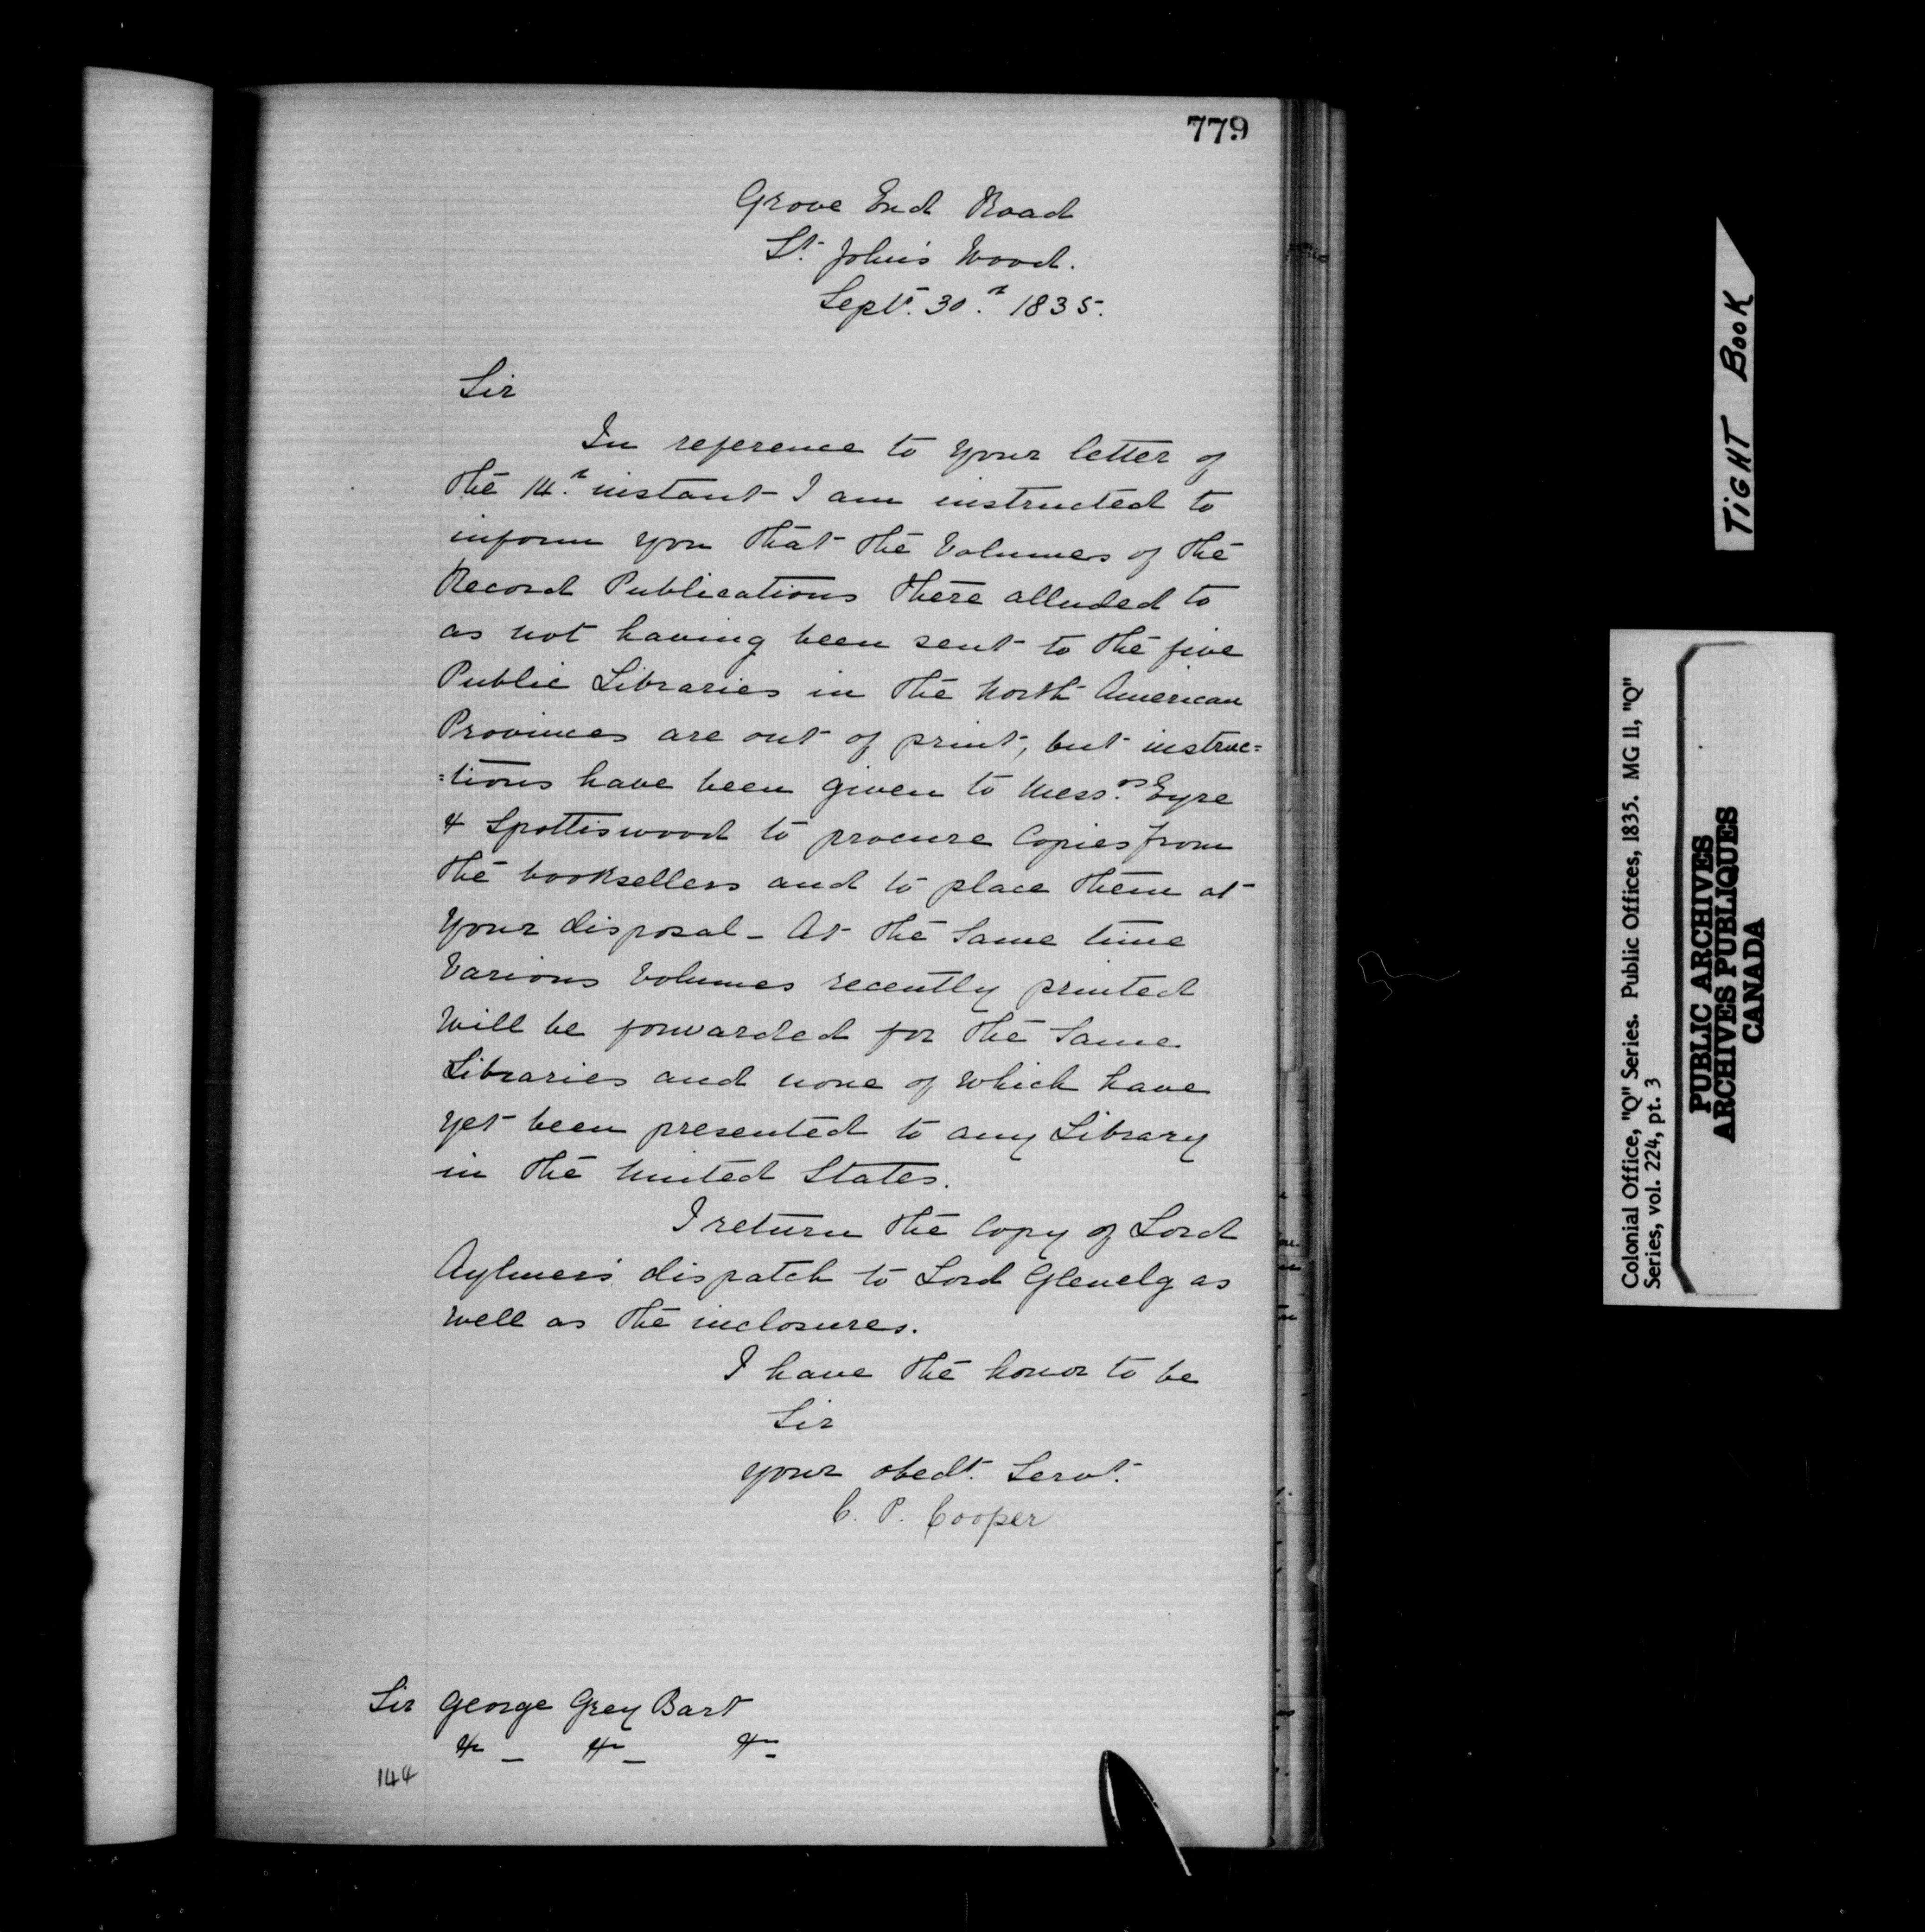 779
Grove End Road
St. John's Wood.
Sept. 30.th 1835.
Sir
In reference to your letter of
the 14.th instant I am instructed to
inform you that the Volumes of the
Record Publications there alluded to
as not having been sent to the five
Public Libraries in the North American
Provinces are out of print, but instruc=
=tions have been given to Mess.rs Eyre
& Spottiswood to procure Copies from
the booksellers and to place them at
your disposal - At the Same time
Various Volumes recently printed
Will be forwarded for the Same
Libraries and none of which have
yet been presented to any Library
in the United States.
I return the Copy of Lord
Aylmer's dispatch to Lord Glenelg as
well as the inclosures.
I have the honor to be
Sir
your obedt. Servt.
C. P. Cooper
Sir George Grey Bart
&c - &c - &c -
144
TiGHT BooK
Colonial Office, "Q" Series. Public Offices, 1835. MG 11, "Q"
Series, vol. 224, pt. 3
PUBLIC ARCHIVES
ARCHIVES PUBLIQUES
CANADA